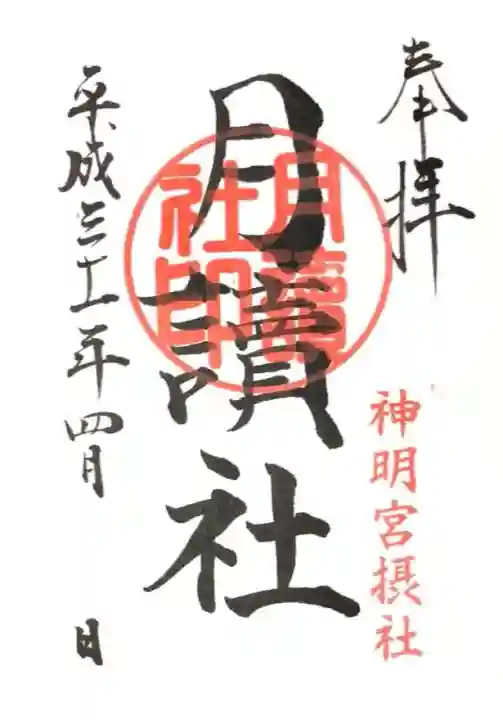 奉拝
神明宮摂社
月讀社
月讀社印
平成三十一年四月 日